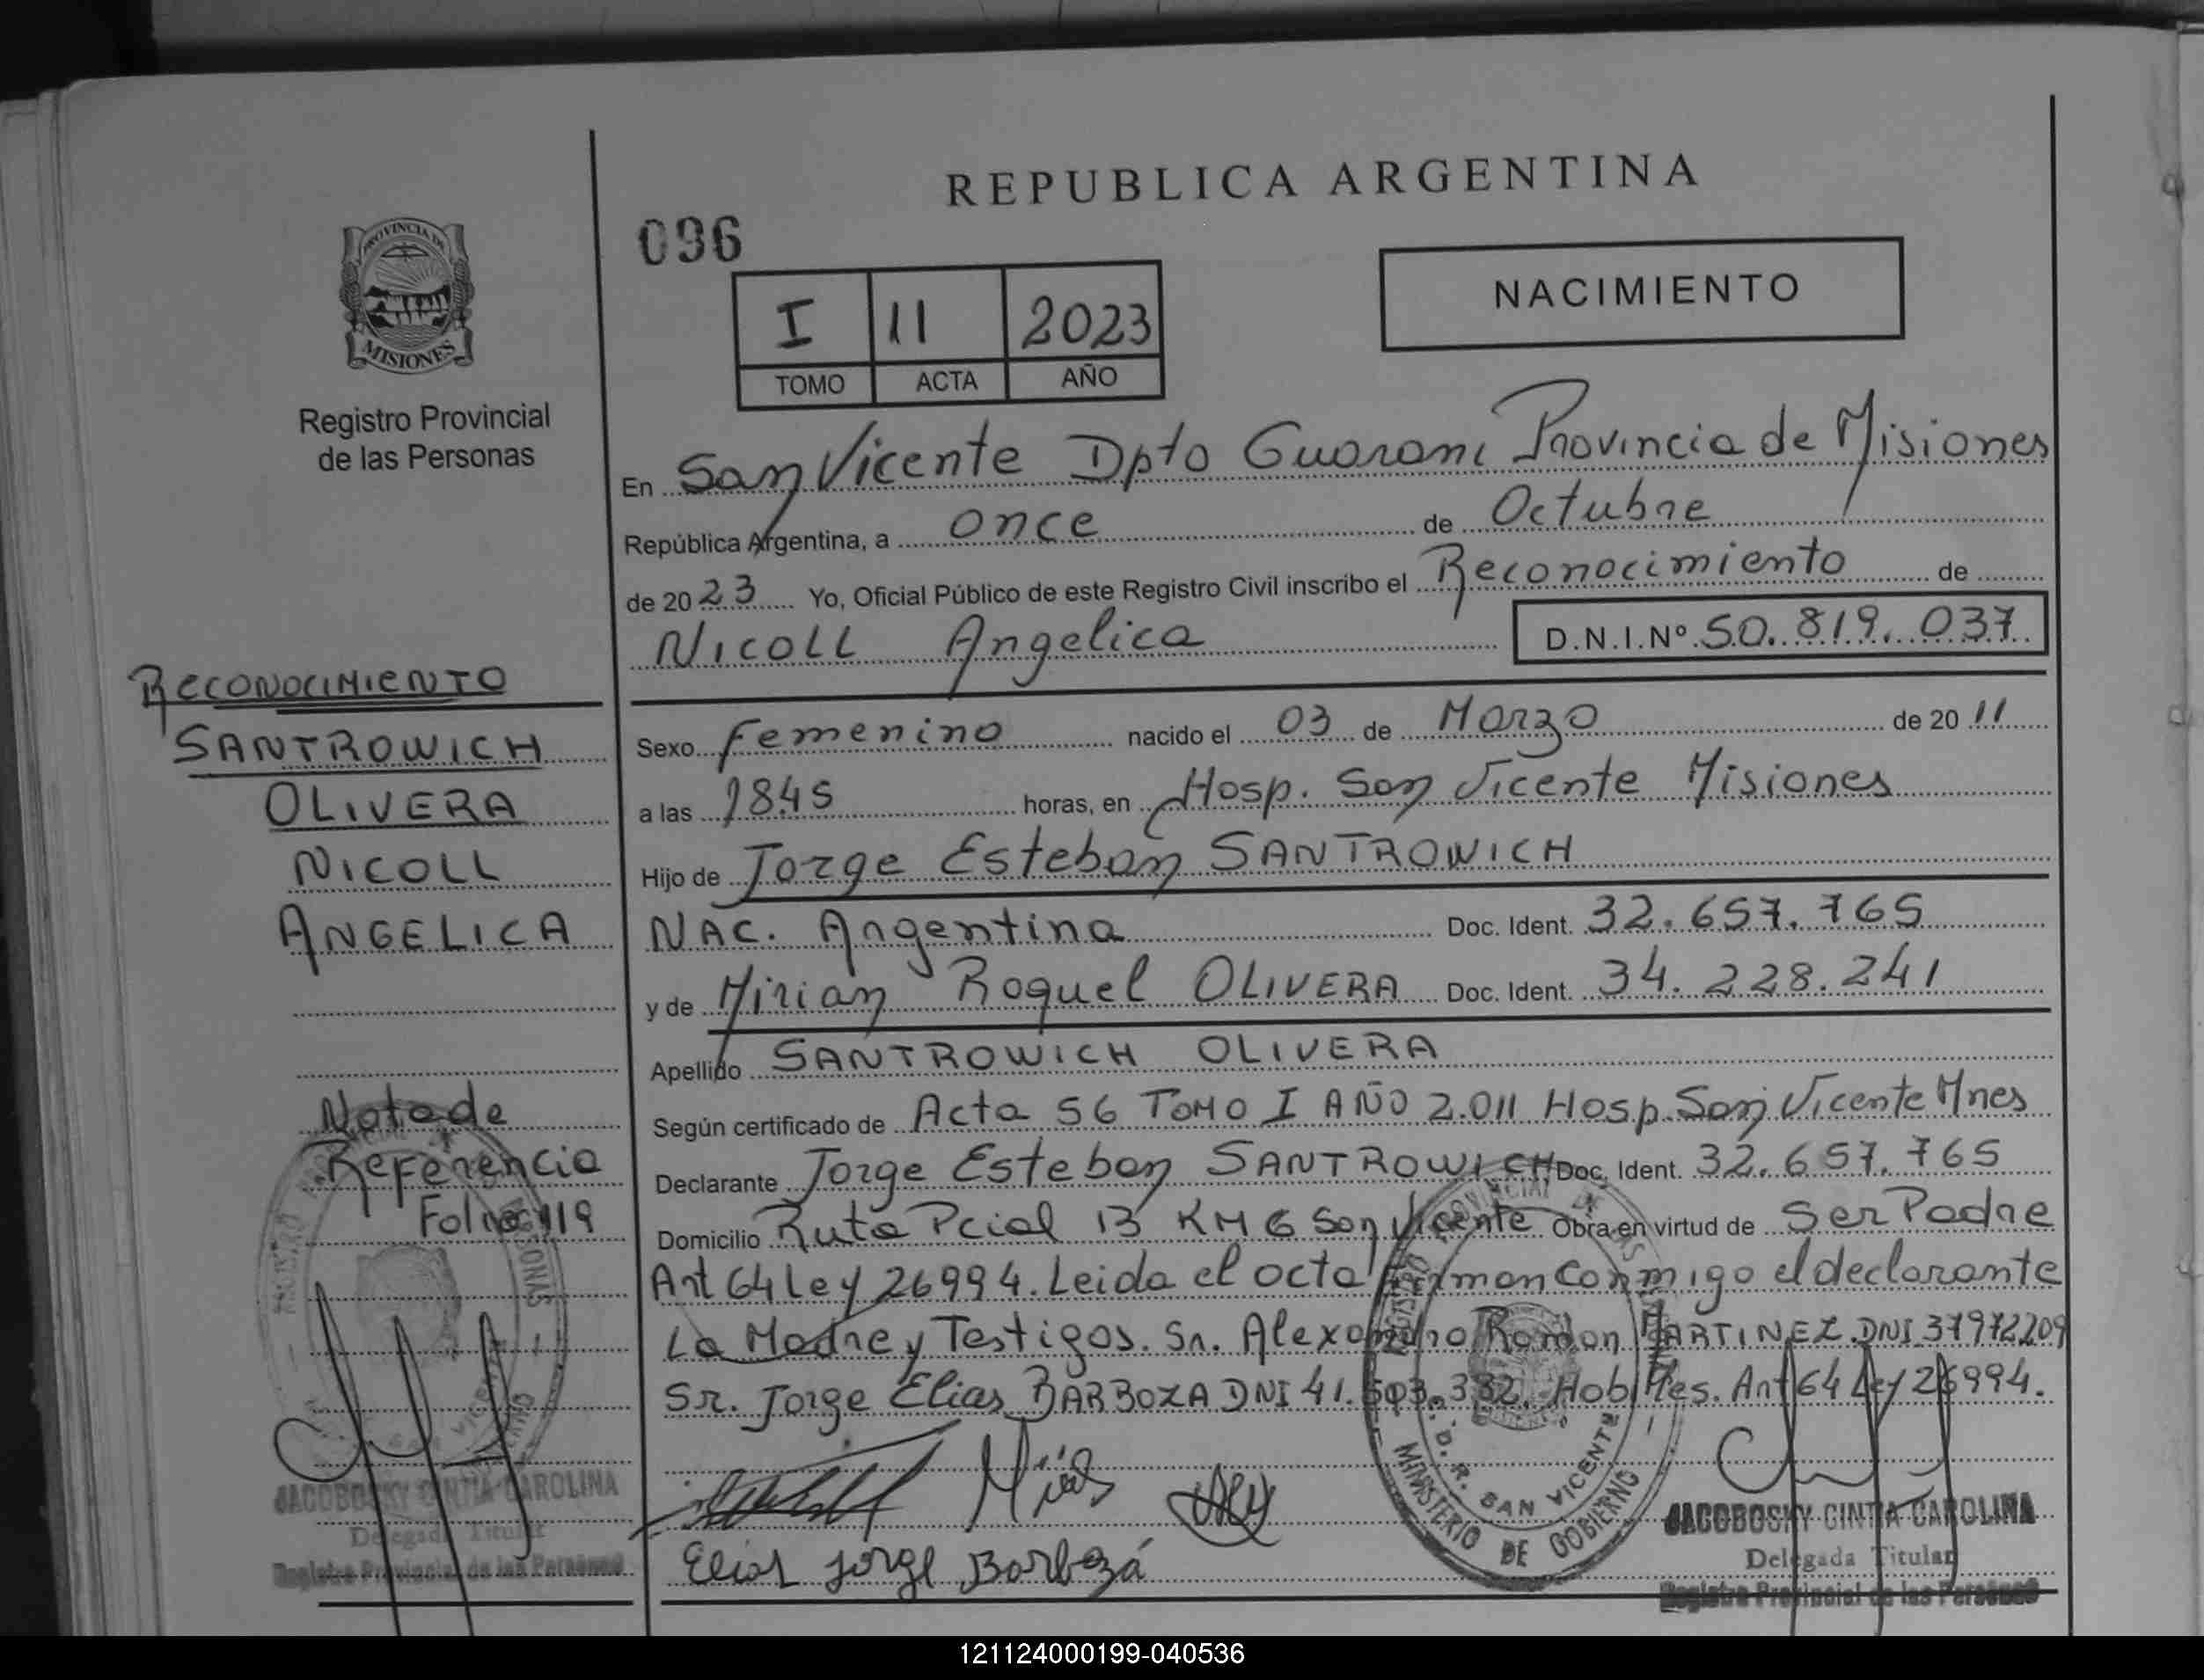 REPUBLICA ARGENTINA
096
NACIMIENTO
PROVINCIA DE
MISIONES
I 11 2023
TOMO ACTA AÑO
Registro Provincial
de las Personas
En San Vicente Dpto Guarani Provincia de Misiones
República Argentina, a once de Octubre
de 2023 Yo, Oficial Público de este Registro Civil inscribo el Reconocimiento de
Nicoll Angelica D.N.I.Nº 50.819.037
RECONOCIMIENTO
SANTROWICH
OLIVERA
NICOLL
ANGELICA
Sexo Femenino nacido el 03 de Marzo de 2011
a las 1845 horas, en Hosp. San Vicente Misiones
Hijo de Jorge Esteban SANTROWICH
NAC. Argentina Doc. Ident. 32.657.765
y de Mirian Raquel OLIVERA Doc. Ident. 34.228.241
Apellido SANTROWICH OLIVERA
Según certificado de Acta 56 TOMO I AÑO 2.011 Hosp. San Vicente Mnes
Declarante Jorge Esteban SANTROWICH Doc. Ident. 32.657.765
Domicilio Ruta Pcial 13 KM 6 San Vicente Obra en virtud de Ser Padre
Art 64 Ley 26994. Leida el acta Firman conmigo el declarante
La Madre y Testigos. Sr. Alexandro Ramon MARTINEZ. DNI 37972209
Sr. Jorge Elias BARBOZA DNI 41.503.332. Habiles. Art 64 Ley 26994.
Nota de
Referencia
Folio 119
Elias Jorge Barboza
D. R. SAN VICENTE
MINISTERIO DE GOBIERNO
JACOBOSKY CINTIA CAROLINA
Delegada Titular
Registro Provincial de las Personas
JACOBOSKY CINTIA CAROLINA
Delegada Titular
Registro Provincial de las Personas
121124000199-040536